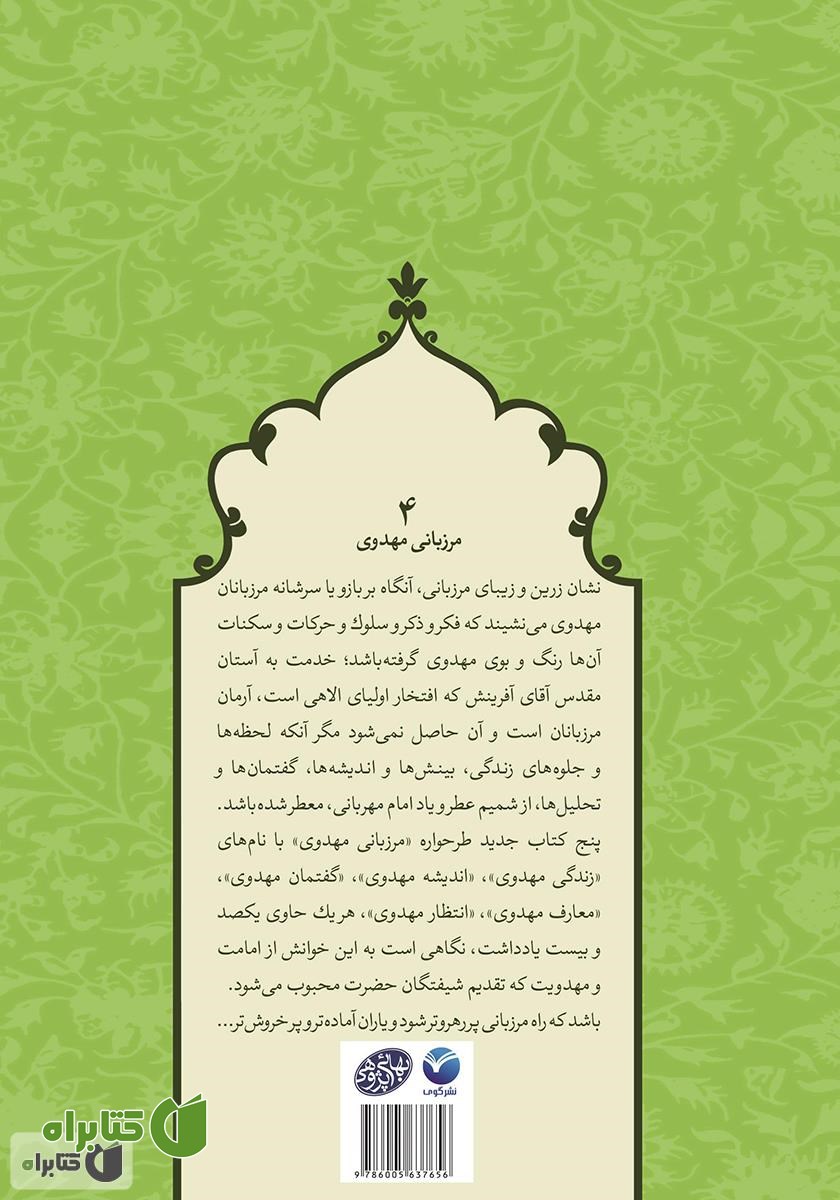 ۴
مرزبانی مهدوی
نشان زرین و زیبای مرزبانی، آنگاه بر بازو یا سرشانه مرزبانان
مهدوی می‌نشیند که فکر و ذکر و سلوك و حرکات و سکنات
آن‌ها رنگ و بوی مهدوی گرفته‌باشد؛ خدمت به آستان
مقدس آقای آفرینش که افتخار اولیای الاهی است، آرمان
مرزبانان است و آن حاصل نمی‌شود مگر آنکه لحظه‌ها
و جلوه‌های زندگی، بینش‌ها و اندیشه‌ها، گفتمان‌ها و
تحلیل‌ها، از شمیم عطر و یاد امام مهربانی، معطر شده باشد.
پنج کتاب جدید طرحواره «مرزبانی مهدوی» با نام‌های
«زندگی مهدوی»، «اندیشه مهدوی»، «گفتمان مهدوی»،
«معارف مهدوی»، «انتظار مهدوی»، هر یك حاوی یکصد
و بیست یادداشت، نگاهی است به این خوانش از امامت
و مهدویت که تقدیم شیفتگان حضرت محبوب می‌شود.
باشد که راه مرزبانی پر رهروتر شود و یاران آماده‌تر و پر خروش‌تر...
بهائی پژوهی
نشر گوی
9 786005 637656
کتابراه
کتابراه